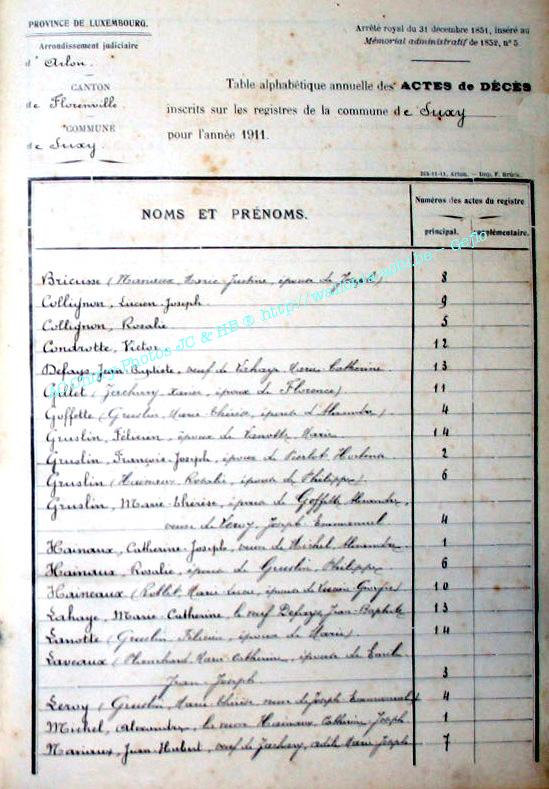 PROVINCE DE LUXEMBOURG.
Arrondissement judiciaire
d'Arlon.
CANTON
de Florenville
COMMUNE
de Suxy.
Arrêté royal du 31 décembre 1851, inséré au
Mémorial administratif de 1852, n° 5.
Table alphabétique annuelle des ACTES de DÉCÈS
inscrits sur les registres de la commune de Suxy
pour l'année 1911.
Arlon. — Imp. F. Brück.
NOMS ET PRÉNOMS.
Numéros des actes du registre
principal. supplémentaire.
Bricusse (Hainaux, Marie Justine, épouse de Joseph) 8
Collignon, Lucien Joseph 9
Collignon, Rosalie 5
Condrotte, Victor 12
Defays, Jean Baptiste, veuf de Lahaye Marie Catherine 13
Gillet (Zachary, Xavier, époux de Florence) 11
Goffette (Gruslin, Marie Thérèse, épouse d'Alexandre) 4
Gruslin, Félicien, époux de Lanotte Marie 14
Gruslin, François Joseph, époux de 2
Gruslin (Hainaux, Rosalie, épouse de Philippe) 6
Gruslin, Marie Thérèse, épouse de Goffette Alexandre,
veuve de Leroy, Joseph Emmanuel 4
Hainaux, Catherine Joseph, veuve de Michel Alexandre 1
Hainaux, Rosalie, épouse de Gruslin, Philippe 6
Haineaux (Roblet, Marie épouse de 10
Lahaye, Marie Catherine, le veuf Defays, Jean Baptiste 13
Lanotte (Gruslin Félicien, époux de Marie) 14
Laveaux (Planchard Marie Catherine, épouse de Emile
Jean Joseph 3
Leroy (Gruslin, Marie Thérèse veuve de Joseph Emmanuel) 4
Michel, Alexandre, la veuve Hainaux, Catherine Joseph 1
Mariaux, Jean Hubert, veuf de Zachary, Marie Joseph 7
Photos JC & HB © http://www. - Gefio